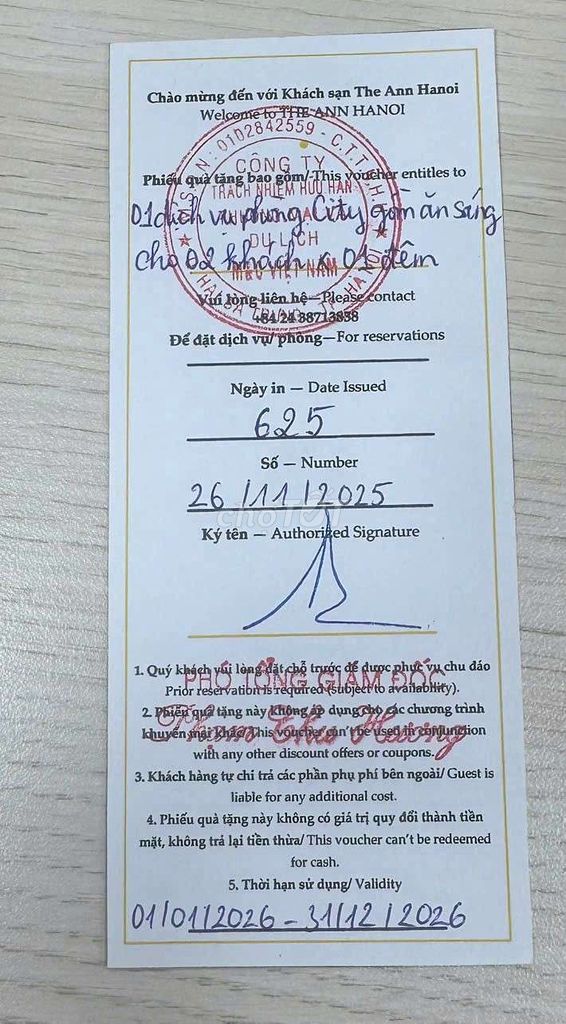 Chào mừng đến với Khách sạn The Ann Hanoi
Welcome to THE ANN HANOI
N: 0102842559 - C.T.T.N.H.H
CÔNG TY
Phiếu quà tặng bao gồm/ This voucher entitles to
TRÁCH NHIỆM HỮU HẠN
01 dịch vụ phòng City gồm ăn sáng
DU LỊCH
cho 02 khách x 01 đêm
M&C VIỆT NAM
Vui lòng liên hệ—Please contact
+84 24 38713838
Để đặt dịch vụ/ phòng—For reservations
Ngày in — Date Issued
625
Số — Number
26/11/2025
choTỐT
Ký tên — Authorized Signature
1. Quý khách vui lòng đặt chỗ trước để được phục vụ chu đáo
PHÓ TỔNG GIÁM ĐỐC
Prior reservation is required (subject to availability).
2. Phiếu quà tặng này không áp dụng cho các chương trình
khuyến mại khác/ This voucher can't be used in conjunction
Thu Hương
with any other discount offers or coupons.
3. Khách hàng tự chi trả các phần phụ phí bên ngoài/ Guest is
liable for any additional cost.
4. Phiếu quà tặng này không có giá trị quy đổi thành tiền
mặt, không trả lại tiền thừa/ This voucher can't be redeemed
for cash.
5. Thời hạn sử dụng/ Validity
01/01/2026 - 31/12/2026